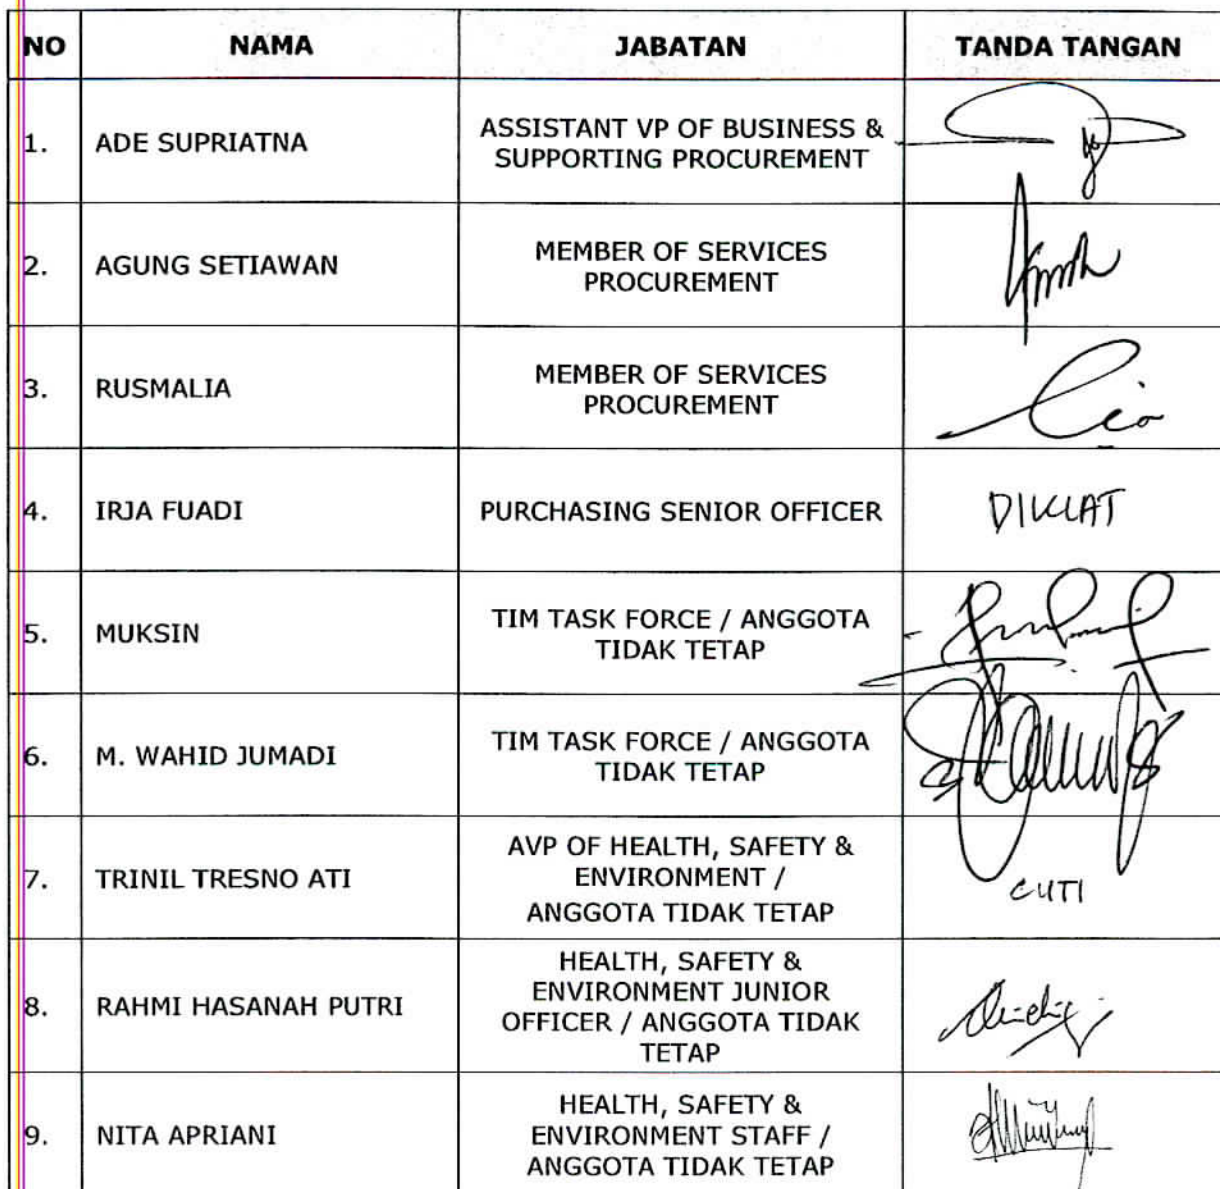 NO NAMA JABATAN TANDA TANGAN
1. ADE SUPRIATNA ASSISTANT VP OF BUSINESS &
SUPPORTING PROCUREMENT
2. AGUNG SETIAWAN MEMBER OF SERVICES
PROCUREMENT
3. RUSMALIA MEMBER OF SERVICES
PROCUREMENT
4. IRJA FUADI PURCHASING SENIOR OFFICER DIKLAT
5. MUKSIN TIM TASK FORCE / ANGGOTA
TIDAK TETAP
6. M. WAHID JUMADI TIM TASK FORCE / ANGGOTA
TIDAK TETAP
7. TRINIL TRESNO ATI AVP OF HEALTH, SAFETY &
ENVIRONMENT /
ANGGOTA TIDAK TETAP CUTI
8. RAHMI HASANAH PUTRI HEALTH, SAFETY &
ENVIRONMENT JUNIOR
OFFICER / ANGGOTA TIDAK
TETAP
9. NITA APRIANI HEALTH, SAFETY &
ENVIRONMENT STAFF /
ANGGOTA TIDAK TETAP